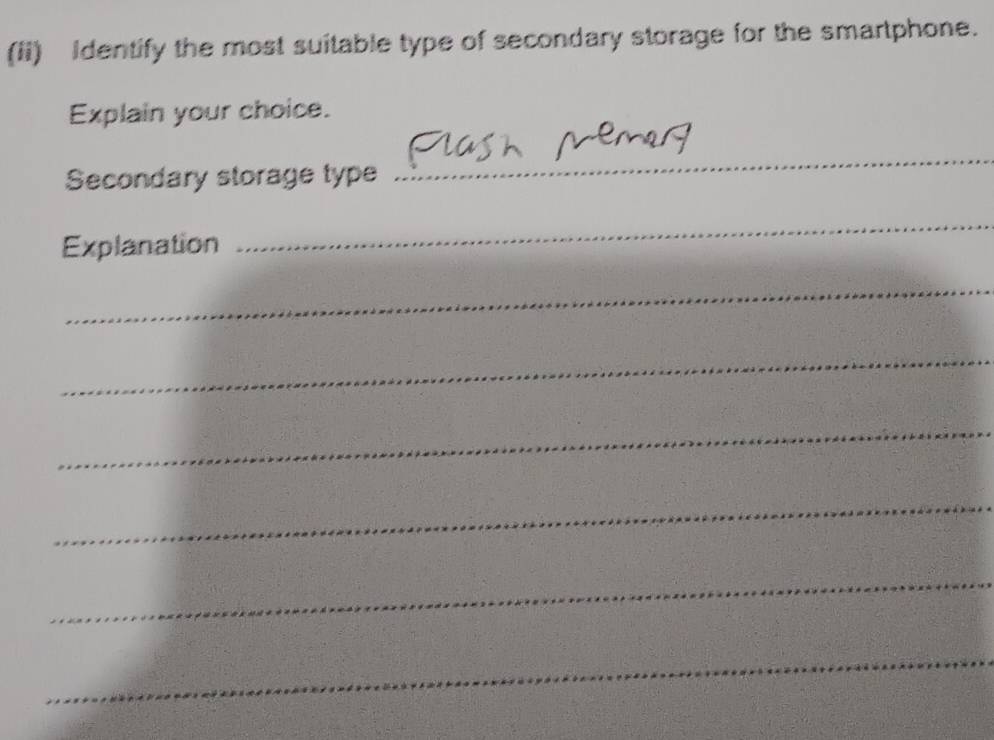 (ii) Identify the most suitable type of secondary storage for the smartphone.
Explain your choice.
Secondary storage type Flash memory
Explanation